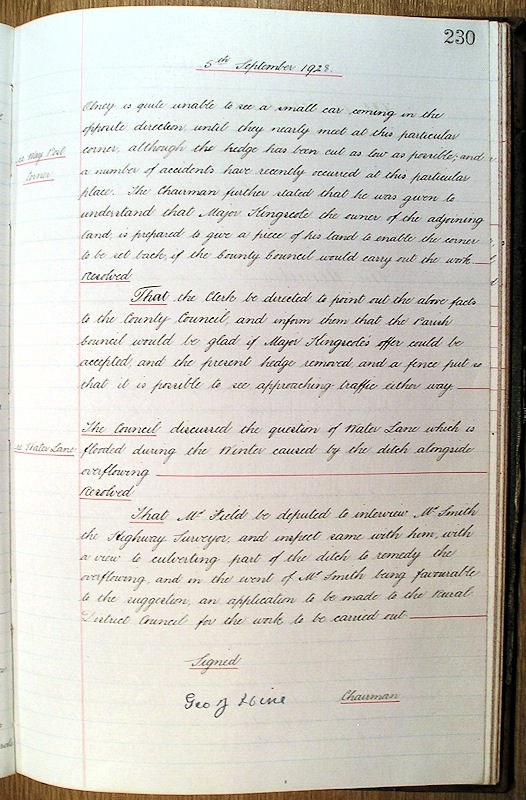 230
5th September 1928.
Olney is quite unable to see a small car coming in the
opposite direction, until they nearly meet at this particular
re Way Post
Corner
corner, although the hedge has been cut as low as possible; and
a number of accidents have recently occurred at this particular
place. The Chairman further stated that he was given to
understand that Major Kingscote the owner of the adjoining
land, is prepared to give a piece of his land to enable the corner
to be set back, if the County Council would carry out the work.
Resolved
That the Clerk be directed to point out the above facts
to the County Council, and inform them that the Parish
Council would be glad if Major Kingscote's offer could be
accepted, and the present hedge removed, and a fence put so
that it is possible to see approaching traffic either way.
The Council discussed the question of Water Lane which is
re Water Lane
flooded during the Winter caused by the ditch alongside
overflowing
Resolved
That Mr Field be deputed to interview Mr Smith
the Highway Surveyor, and inspect same with him, with
a view to culverting part of the ditch to remedy the
overflowing, and in the event of Mr Smith being favourable
to the suggestion, an application to be made to the Rural
District Council for the work to be carried out.
Signed
Geo J Hine
Chairman